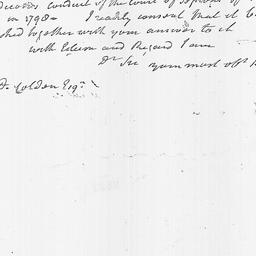 conduct of the Court of
in 1790 I readily consent that it
together with your answer to it
with Esteem and Regard I am
Dr Sir your most obt
Colden Esqr